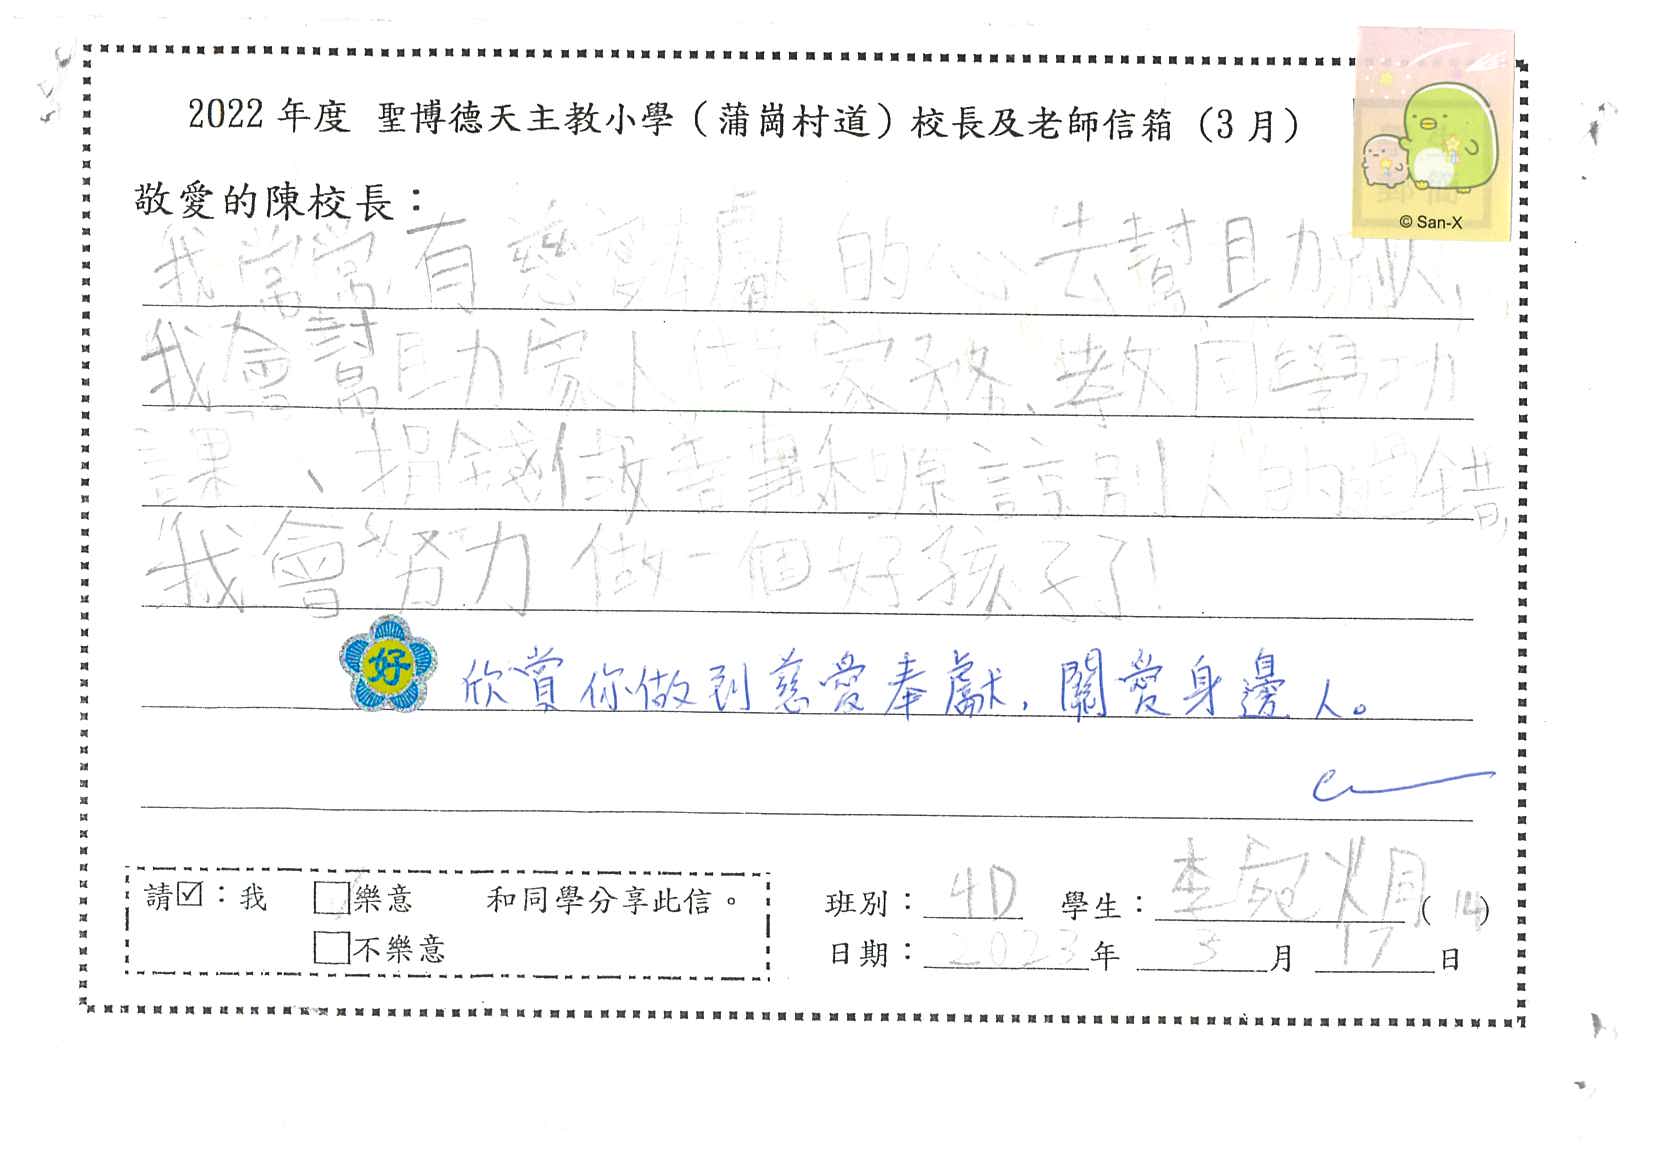 2022 年度 聖博德天主教小學（蒲崗村道）校長及老師信箱（3 月）
© San-X
敬愛的陳校長：
我常常有慈愛奉獻的心去幫助人，
我會幫助家人做家務、教同學功
課、捐錢做善事和原諒別人的過錯，
我會努力做一個好孩子！
好 欣賞你做到慈愛奉獻，關愛身邊人。
請☑：我 □樂意 和同學分享此信。
□不樂意
班別：4D 學生：李宛 (14)
日期：2023年 3月 17日